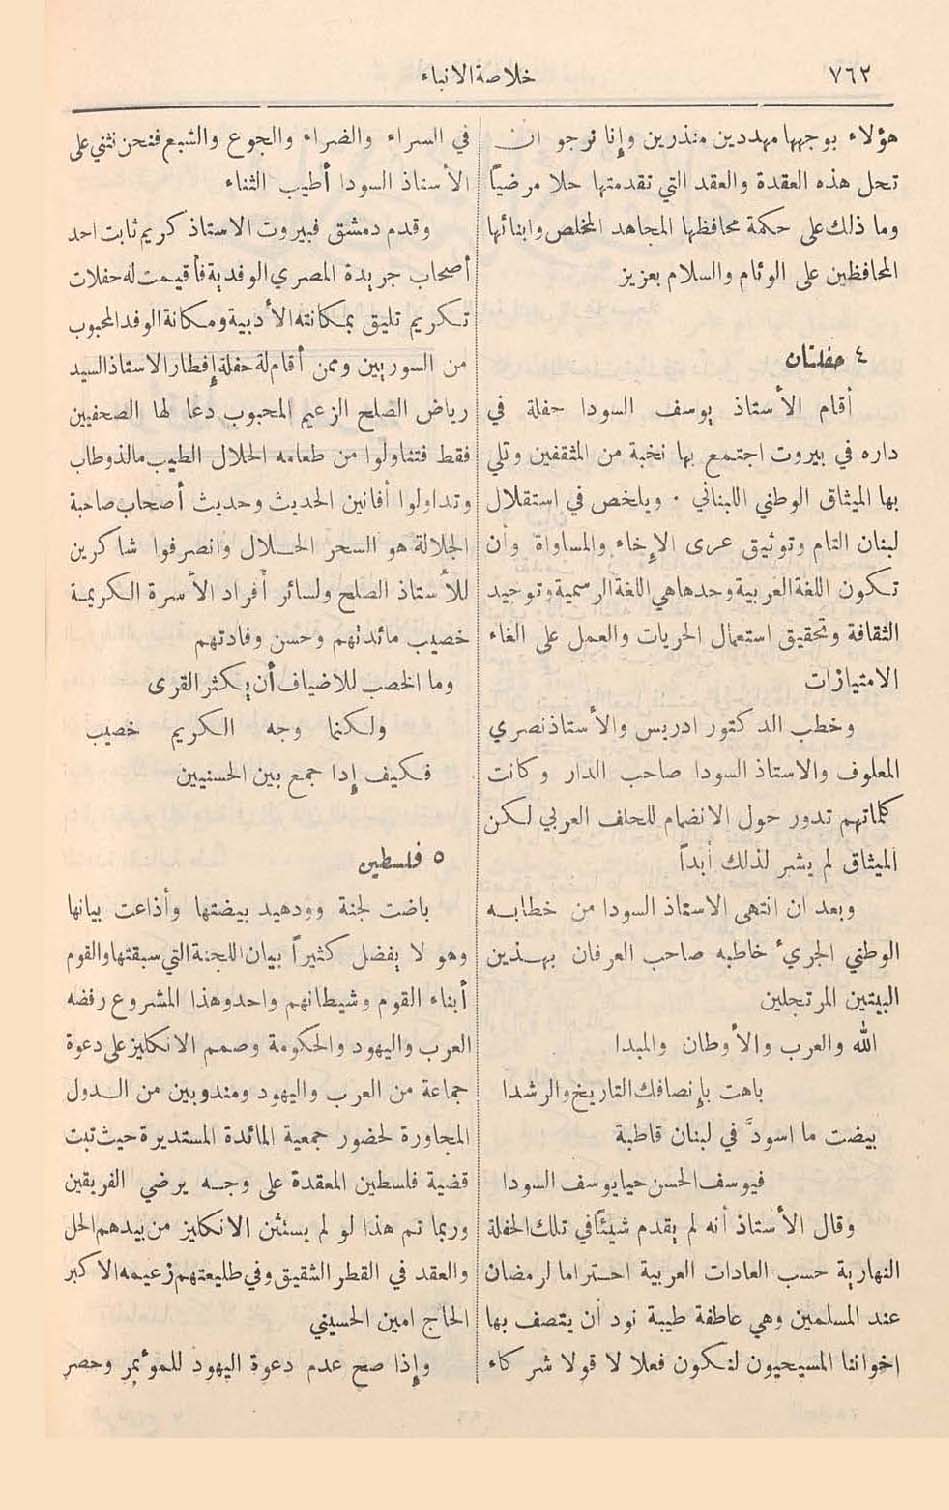 ٧٦٢
خلاصة الانباء
هؤلاء بوجهها مهددين منذرين وإنا نرجو ان
تحل هذه العقدة والعقد التي تقدمتها حلا مرضياً
وما ذلك على حكمة محافظها المجاهد المخلص وابنائها
المحافظين على الوئام والسلام بعزيز
٤ حفلتان
أقام الأستاذ يوسف السودا حفلة في
داره في بيروت اجتمع بها نخبة من المثقفين وتلي
بها الميثاق الوطني اللبناني . ويلخص في استقلال
لبنان التام وتوثيق عرى الإخاء والمساواة وأن
تكون اللغة العربية وحدها هي اللغة الرسمية وتوحيد
الثقافة وتحقيق استعمال الحريات والعمل على الغاء
الامتيازات
وخطب الدكتور ادريس والأستاذ نصري
المعلوف والاستاذ السودا صاحب الدار وكانت
كلماتهم تدور حول الانضمام للحلف العربي لكن
الميثاق لم يشر لذلك أبداً
وبعد ان انتهى الاستاذ السودا من خطابه
الوطني الجريء خاطبه صاحب العرفان بهذين
البيتين المرتجلين
الله والعرب والأوطان والمبدا
باهت بإنصافك التاريخ والرشدا
بيضت ما اسودَّ في لبنان قاطبة
فيوسف الحسن حيا يوسف السودا
وقال الأستاذ أنه لم يقدم شيئاً في تلك الحفلة
النهارية حسب العادات العربية احتراما لرمضان
عند المسلمين وهي عاطفة طيبة نود أن يتصف بها
اخواننا المسيحيون لنكون فعلا لا قولا شركاء
في السراء والضراء والجوع والشبع فنحن نثني على
الأستاذ السودا أطيب الثناء
وقدم دمشق فبيروت الاستاذ كريم ثابت احد
أصحاب جريدة المصري الوفدية فأقيمت له حفلات
تكريم تليق بمكانته الأدبية ومكانة الوفد المحبوب
من السوريين وممن أقام له حفلة إفطار الاستاذ السيد
رياض الصلح الزعيم المحبوب دعا لها الصحفيين
فقط فتناولوا من طعامه الحلال الطيب ما لذ وطاب
وتداولوا أفانين الحديث وحديث أصحاب صاحبة
الجلالة هو السحر الحلال وانصرفوا شاكرين
للأستاذ الصلح ولسائر أفراد الأسرة الكريمة
خصيب مائدتهم وحسن وفادتهم
وما الخصب للاضياف أن يكثر القرى
ولكنما وجه الكريم خصيب
فكيف إدا جمع بين الحسنيين
٥ فلسطين
باضت لجنة وودهيد بيضتها وأذاعت بيانها
وهو لا يفضل كثيراً بيان اللجنة التي سبقتها والقوم
أبناء القوم وشيطانهم واحد وهذا المشروع رفضه
العرب واليهود والحكومة وصمم الانكليز على دعوة
جماعة من العرب واليهود ومندوبين من الدول
المجاورة لحضور جمعية المائدة المستديرة حيث تبت
قضية فلسطين المعقدة على وجه يرضي الفريقين
وربما تم هذا لو لم يستثن الانكليز من بيدهم الحل
والعقد في القطر الشقيق وفي طليعتهم زعيمه الاكبر
الحاج امين الحسيني
وإذا صح عدم دعوة اليهود للموءتمر وحصر